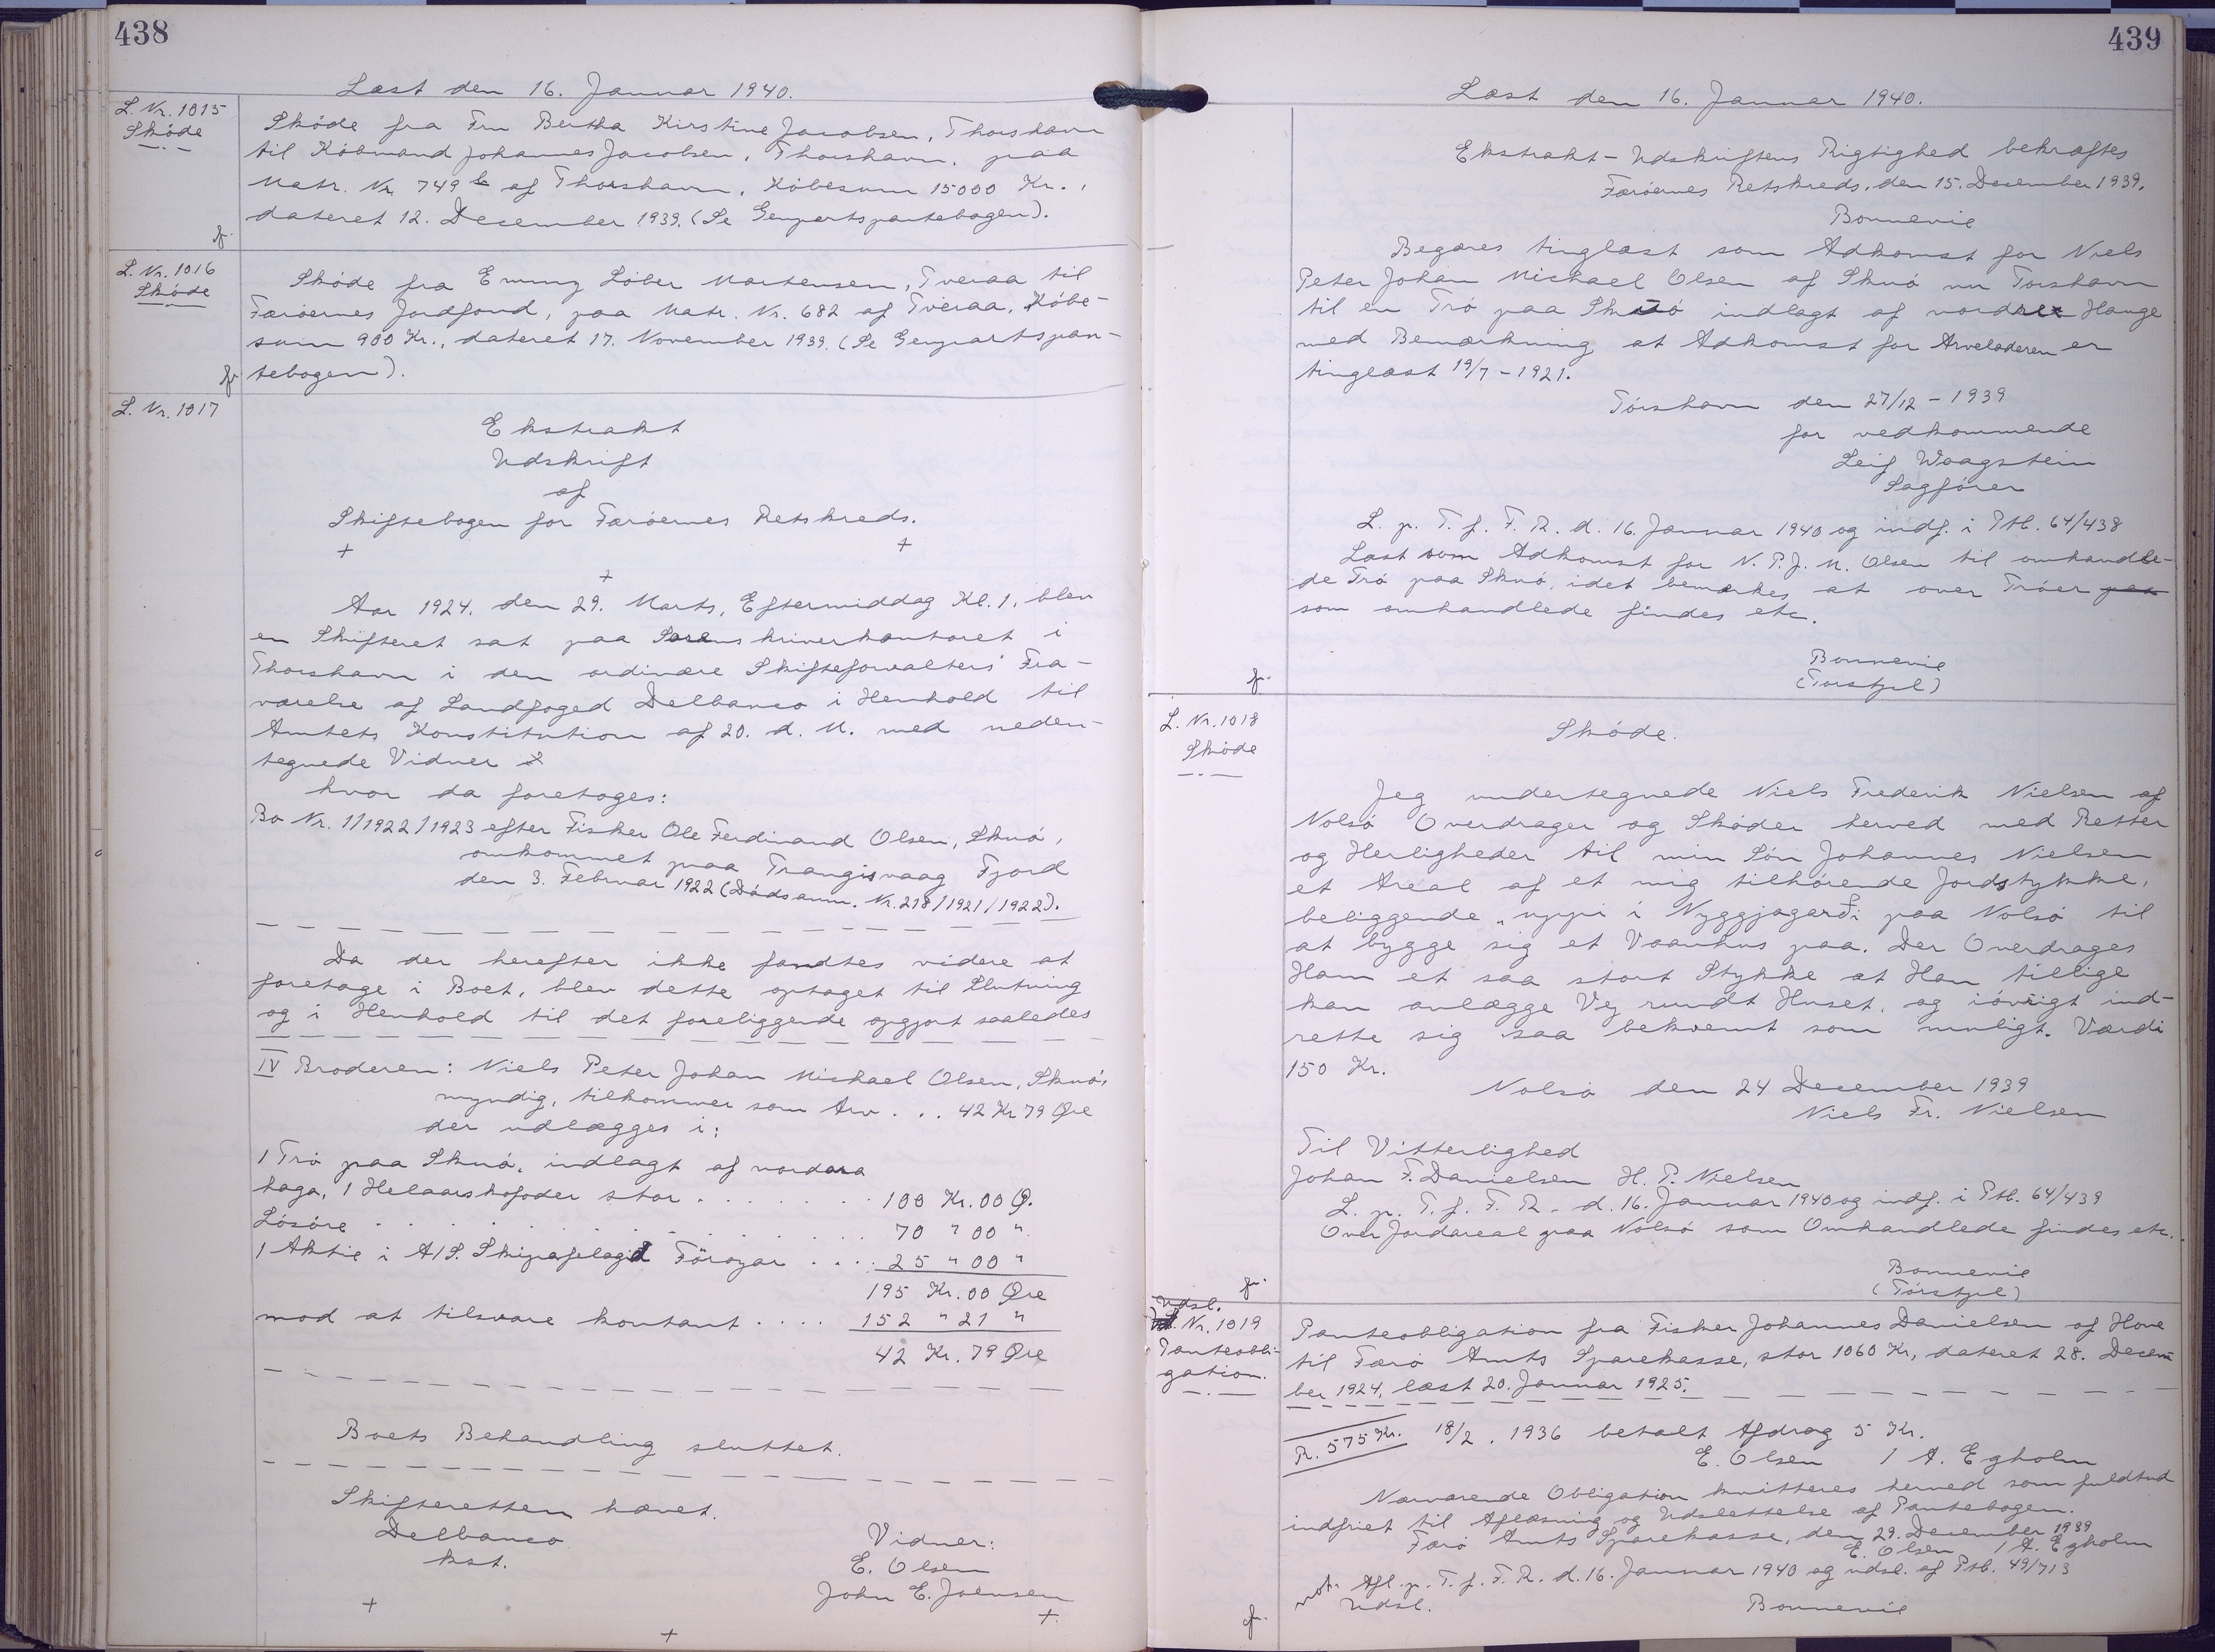 438
Læst den 16. Januar 1940.
L. Nr. 1015
Skøde
Skøde fra Fru Bertha Kirstine Jacobsen, Thorshavn
til Købmand Johannes Jacobsen, Thorshavn, paa
Matr. Nr. 749 b af Thorshavn, Købesum 15000 Kr.,
dateret 12. December 1939. (Se Genpartspantebogen).
L. Nr. 1016
Skøde
Skøde fra Emmy Løber Mortensen, Tveraa til
Færøernes Jordfond, paa Matr. Nr. 682 af Tveraa, Købe-
sum 900 Kr., dateret 17. November 1939. (Se Genpartspan-
tebogen).
L. Nr. 1017
Ekstrakt
Udskrift
af
Skiftebogen for Færøernes Retskreds.
+ +
+
Aar 1924, den 29. Marts, Eftermiddag Kl. 1, blev
en Skifteret sat paa Sorenskriverkontoret i
Thorshavn i den ordinære Skifteforvalters Fra-
værelse af Landfoged Delbanco i Henhold til
Amtets Konstitution af 20. d. M. med neden-
tegnede Vidner
hvor da foretoges:
Bo Nr. 1/1922/1923 efter Fisker Ole Ferdinand Olsen, Skuø,
omkommet paa Trangisvaag Fjord
den 3. Februar 1922 (Dødsanm. Nr. 218/1921/1922).
Da der herefter ikke fandtes videre at
foretage i Boet, blev dette optaget til Slutning
og i Henhold til det foreliggende opgjort saaledes
IV Broderen: Niels Peter Johan Michael Olsen, Skuø,
myndig, tilkommer som Arv . . . 42 Kr 79 Øre
der udlægges i:
1 Trø paa Skuø, indlagt af nordara
haga, 1 Helaarskofoder stor . . . . . . . 100 Kr. 00 Ø.
Løsøre . . . . . . . . . . 70 " 00 "
1 Aktie i A/S. Skipafelagið Føroyar . . . . 25 " 00 "
195 Kr. 00 Øre
mod at tilsvare kontant . . . . 152 " 21 "
42 Kr. 79 Øre
Boets Behandling sluttet.
Skifteretten hævet.
Delbanco
kst.
Vidner:
E. Olsen
John E. Joensen
+ +
+
439
Læst den 16. Januar 1940.
Ekstrakt-Udskriftens Rigtighed bekræftes
Færøernes Retskreds, den 15. December 1939.
Bonnevie
Begæres tinglæst som Adkomst for Niels
Peter Johan Michael Olsen af Skuø nu Torshavn
til en Trø paa Skuø indlagt af nordre Hauge
med Bemærkning at Adkomst for Arveladeren er
tinglæst 19/7 - 1921.
Tórshavn den 27/12 - 1939
for vedkommende
Leif Waagstein
Sagfører
L. p. T. f. F. R. d. 16. Januar 1940 og indf. i Ptb. 64/438
Læst som Adkomst for N. P. J. M. Olsen til omhandle-
de Trø paa Skuø, idet bemærkes at over Trøer paa
som omhandlede findes etc.
Bonnevie
(Torstjel)
L. Nr. 1018
Skøde
Skøde.
Jeg undertegnede Niels Frederik Nielsen af
Nolsø Overdrager og Skøder herved med Retter
og Herligheder til min Søn Johannes Nielsen
et Areal af et mig tilhørende Jordstykke,
beliggende „uppi í Nyggjagarði paa Nolsø til
at bygge sig et Vaanhus paa. Der Overdrages
Ham et saa stort Stykke at Han tillige
kan anlægge Vej rundt Huset, og iøvrigt ind-
rette sig saa bekvemt som muligt. Værdi
150 Kr.
Nolsø den 24 December 1939
Niels Fr. Nielsen
Til Vitterlighed
Johan F. Danielsen H. P. Nielsen
L. p. T. f. F. R. d. 16. Januar 1940 og indf. i Ptb. 64/439
Over Jordareal paa Nolsø som Omhandlede findes etc.
Bonnevie
(Tórstjel)
Udsl.
Nr. 1019
Panteobli-
gation.
Panteobligation fra Fisker Johannes Danielsen af Hove
til Færø Amts Sparekasse, stor 1060 Kr, dateret 28. Decem
ber 1924, læst 20. Januar 1925.
R. 575 Kr. 18/2. 1936 betalt Afdrag 5 Kr.
E. Olsen / A. Egholm
Nærværende Obligation kvitteres herved som fuldtud
indfriet til Aflæsning og Udslettelse af Pantebogen.
Færø Amts Sparekasse, den 29. December 1939
E. Olsen / A. Egholm
not. Afl. p. T. f. F. R. d. 16. Januar 1940 og udsl. af Ptb. 49/713
Udsl.
Bonnevie